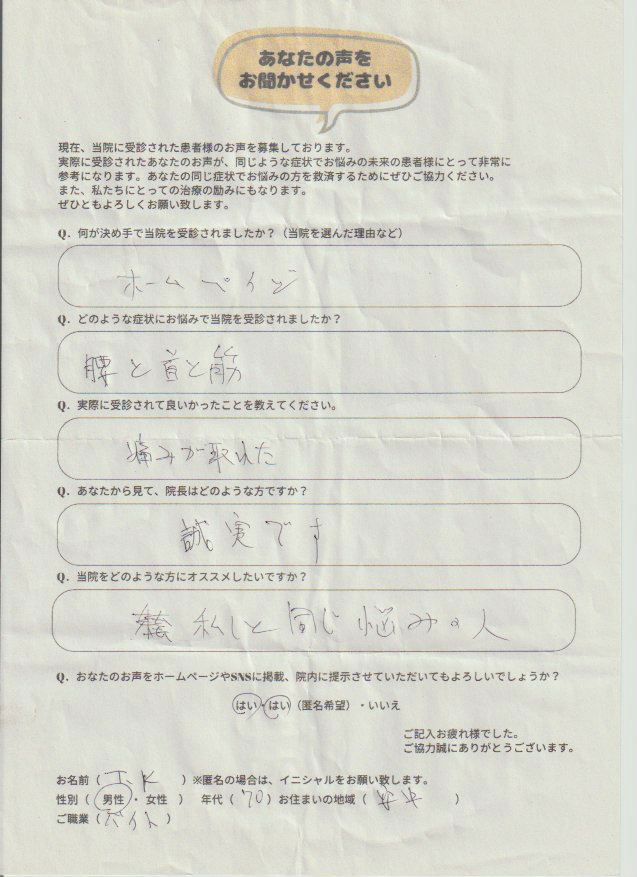 あなたの声を
お聞かせください
現在、当院に受診された患者様のお声を募集しております。
実際に受診されたあなたのお声が、同じような症状でお悩みの未来の患者様にとって非常に
参考になります。あなたの同じ症状でお悩みの方を救済するためにぜひご協力ください。
また、私たちにとっての治療の励みにもなります。
ぜひともよろしくお願い致します。
Q. 何が決め手で当院を受診されましたか？（当院を選んだ理由など）
ホームページ
Q. どのような症状にお悩みで当院を受診されましたか？
腰と首と筋
Q. 実際に受診されて良いかったことを教えてください。
痛みが取れた
Q. あなたから見て、院長はどのような方ですか？
誠実です
Q. 当院をどのような方にオススメしたいですか？
私しと同じ悩みの人
Q. あなたのお声をホームページやSNSに掲載、院内に提示させていただいてもよろしいでしょうか？
はい・はい（匿名希望）・いいえ
ご記入お疲れ様でした。
ご協力誠にありがとうございます。
お名前（ ）※匿名の場合は、イニシャルをお願い致します。
性別（ 男性 ・ 女性 ） 年代（ 70 ）お住まいの地域（ ）
ご職業（ バイト ）